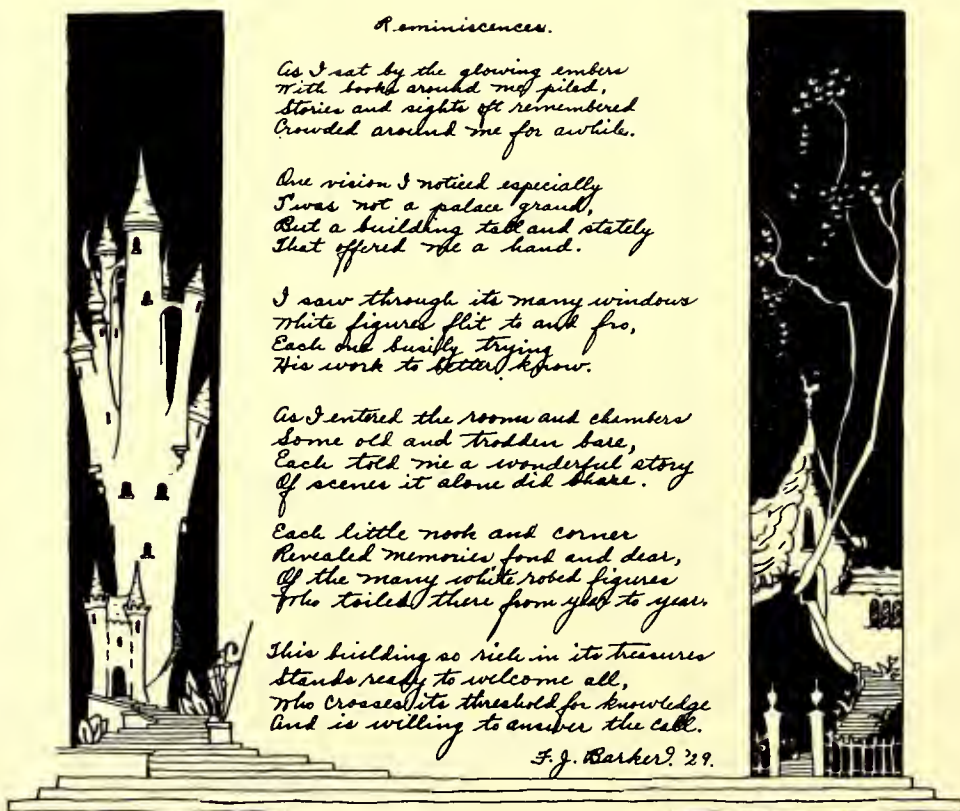 Reminiscences.
As I sat by the glowing embers
With books around me piled,
Stories and sights oft remembered
Crowded around me for awhile.
One vision I noticed especially
T'was not a palace grand,
But a building tall and stately
That offered me a hand.
I saw through its many windows
White figures flit to and fro,
Each one busily trying
His work to better know.
As I entered the rooms and chambers
Some old and trodden bare,
Each told me a wonderful story
Of scenes it alone did share.
Each little nook and corner
Revealed memories fond and dear,
Of the many white robed figures
Who toiled there from year to year.
This building so rich in its treasures
Stands ready to welcome all,
Who crosses its threshold for knowledge
And is willing to answer the call.
F. J. Barker. '29.